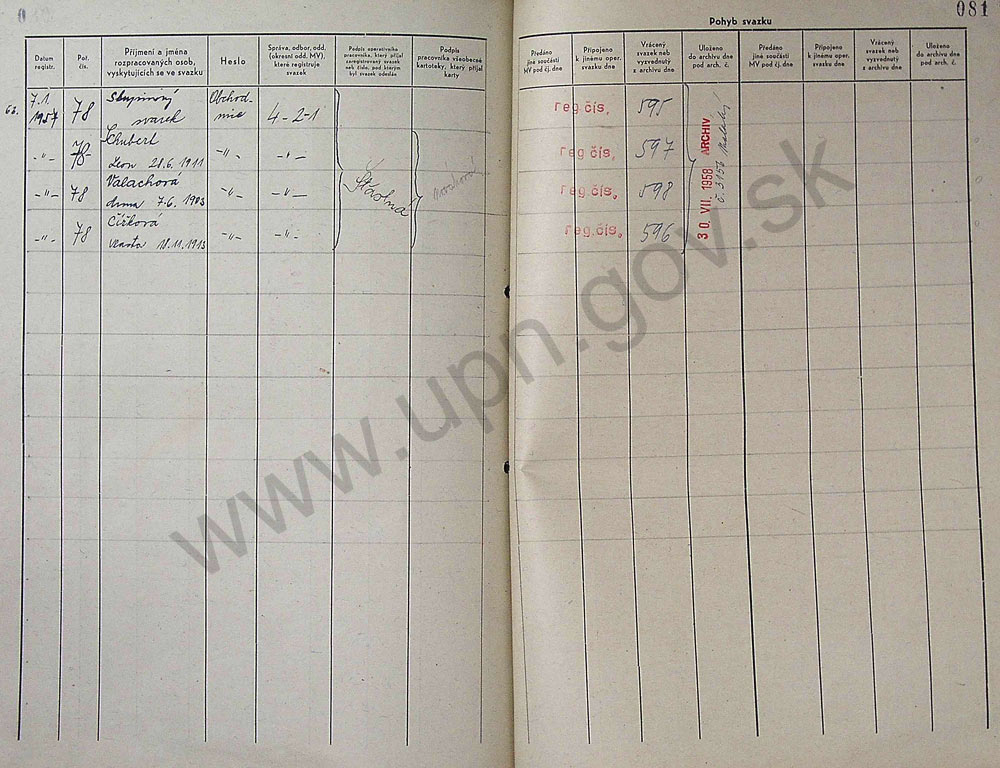 081
Pohyb svazku
Datum registr.
Poř. čís.
Příjmení a jména
rozpracovaných osob,
vyskytujících se ve svazku
Heslo
Správa, odbor, odd.
(okresní odd. MV),
které registruje
svazek
Podpis operativního
pracovníka, který přijal
zaregistrovaný svazek
neb číslo, pod kterým
byl svazek odeslán
Podpis
pracovníka všeobecné
kartoteky, který přijal
karty
Předáno
jiné součásti
MV pod čj. dne
Připojeno
k jinému oper.
svazku dne
Vrácený
svazek neb
vyzvednutý
z archivu dne
Uloženo
do archivu dne
pod arch. č.
Předáno
jiné součásti
MV pod čj. dne
Připojeno
k jinému oper.
svazku dne
Vrácený
svazek neb
vyzvednutý
z archivu dne
Uloženo
do archivu dne
pod arch. č.
62. 7.1 1957 78 Skupinový svazek Obchodnice 4-2-1 reg.čís. 595
-"- 78 Schubert Leon 21.6.1911 -"- -"- reg.čís. 597
-"- 78 Valachová Anna 7.6.1903 -"- -"- reg.čís. 598
-"- 78 Čížková Vlasta 18.11.1913 -"- -"- reg.čís. 596
Šťastná
30. VII. 1958 ARCHIV
č. 3156
www.upn.gov.sk